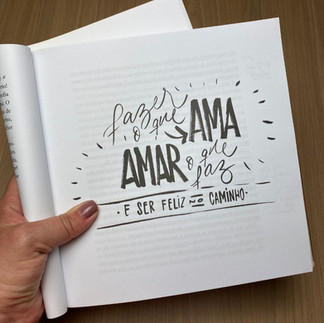 fazer
o que AMA
AMAR o que
faz
E SER FELIZ NO CAMINHO